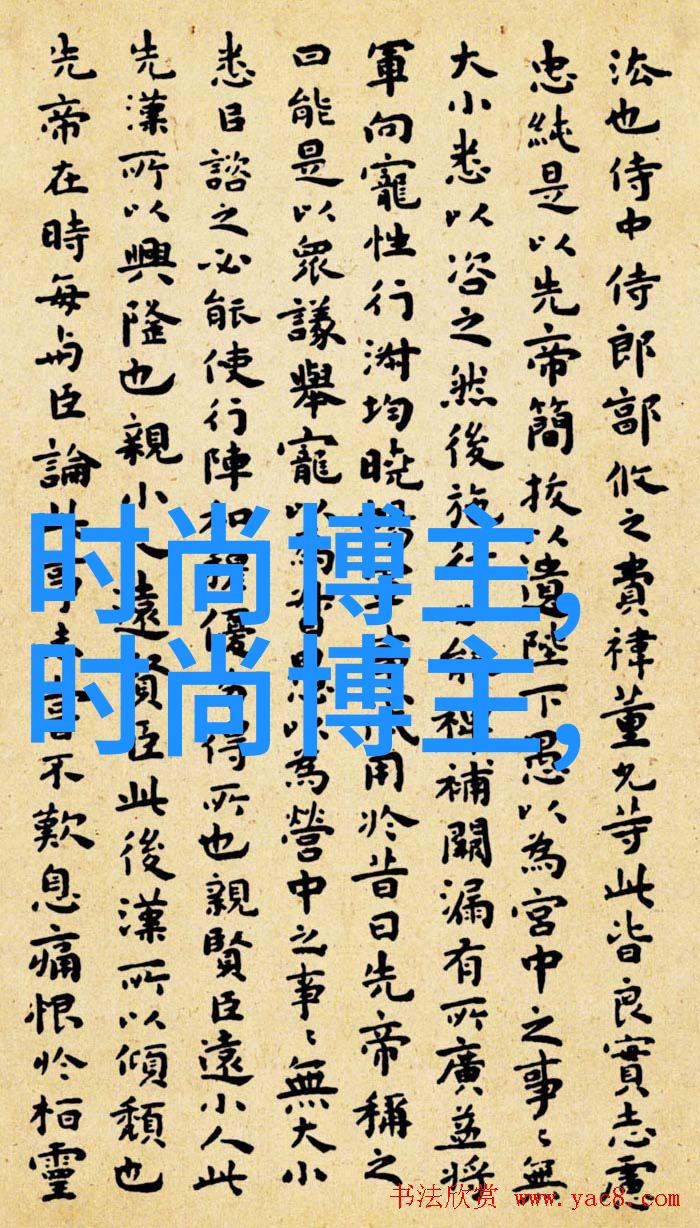 法也侍中侍郎郭攸之費禕董允等此皆良實志慮
忠純是以先帝簡拔以遺陛下愚以為宮中之事〻無
大小悉以咨之然後施行必能裨補闕漏有所廣益將
軍向寵性行淑均曉暢軍事試用於昔日先帝稱之
曰能是以眾議舉寵以為督愚以為營中之事〻無大小
悉㠯諮之必能使行陣和穆優劣得所也親賢臣遠小人此
先漢所以興隆也親小人遠賢臣此後漢所以傾頹也
先帝在時每與臣論此事未嘗不歎息痛恨於桓靈
时尚博主,
时尚博主,
书法欣赏 www.yac8.com